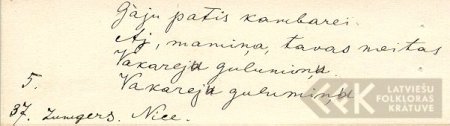 Gāju patis kambarei.
Aj, mamiņa, tavas meitas
Vakareja gulumiņa.
5. Vakareja gulumiņa
37. Zumgers. Nīce.
LATVIEŠU
FOLKLORAS
KRĀTUVE